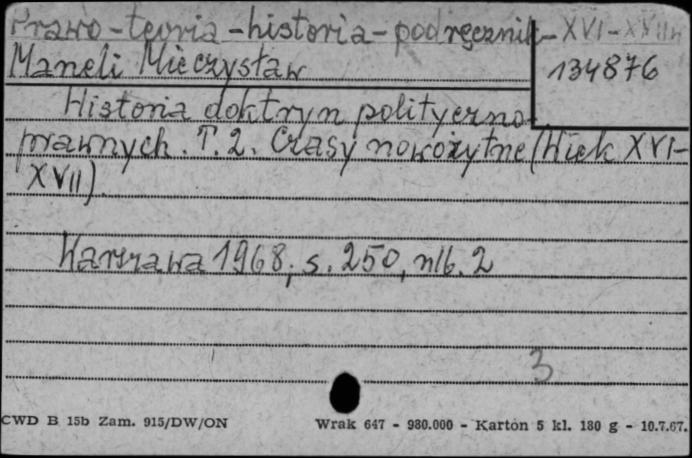 Prawo-teoria-historia-podręcznik-XVI-XVII w
Maneli Mieczysław
134876
Historia doktryn polityczno-
prawnych. T. 2. Czasy nowożytne (Wiek XVI-
XVII).
Warszawa 1968, s. 250, nlb. 2
3
CWD B 15b Zam. 915/DW/ON Wrak 647 - 980.000 - Karton 5 kl. 180 g - 10.7.67.